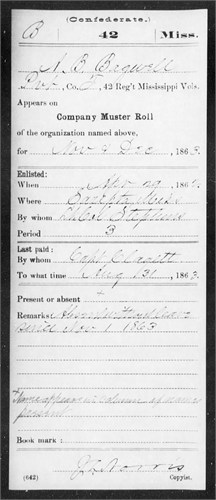 (Confederate.)
B 42 Miss.
A. B. Bagwell
Pvt, Co. F, 42 Reg't Mississippi Vols.
Appears on
Company Muster Roll
of the organization named above,
for Nov & Dec, 1863.
Enlisted:
When Nov 29, 186
Where Miss
By whom Lt Col Stephens
Period 3
Last paid:
By whom Capt Clavett
To what time Aug 31, 1863.
Present or absent
Remarks: Absent without leave
since Nov 1 1863
Name appears in column of names
present
Book mark:
(642) Copyist.